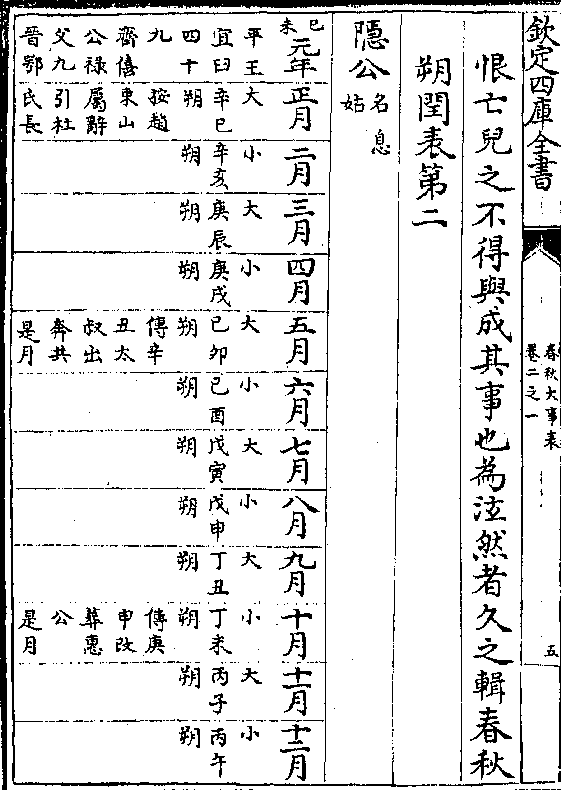 欽定四庫全書
春秋大事表
卷二之一
五
恨亡兒之不得與成其事也為泫然者久之輯春秋
朔閏表第二
隱公
名息
姑
己未
元年
平王
宜臼
四十
九
齊僖
公祿
父九
晉鄂
正月
大
辛巳
朔
按趙
東山
屬辭
引杜
氏長
二月
小
辛亥
朔
三月
大
庚辰
朔
四月
小
庚戌
朔
五月
大
己卯
朔
傳辛
丑太
叔出
奔共
是月
六月
小
己酉
朔
七月
大
戊寅
朔
八月
小
戊申
朔
九月
大
丁丑
朔
十月
小
丁未
朔
傳庚
申改
葬惠
公
是月
十一月
大
丙子
朔
十二月
小
丙午
朔